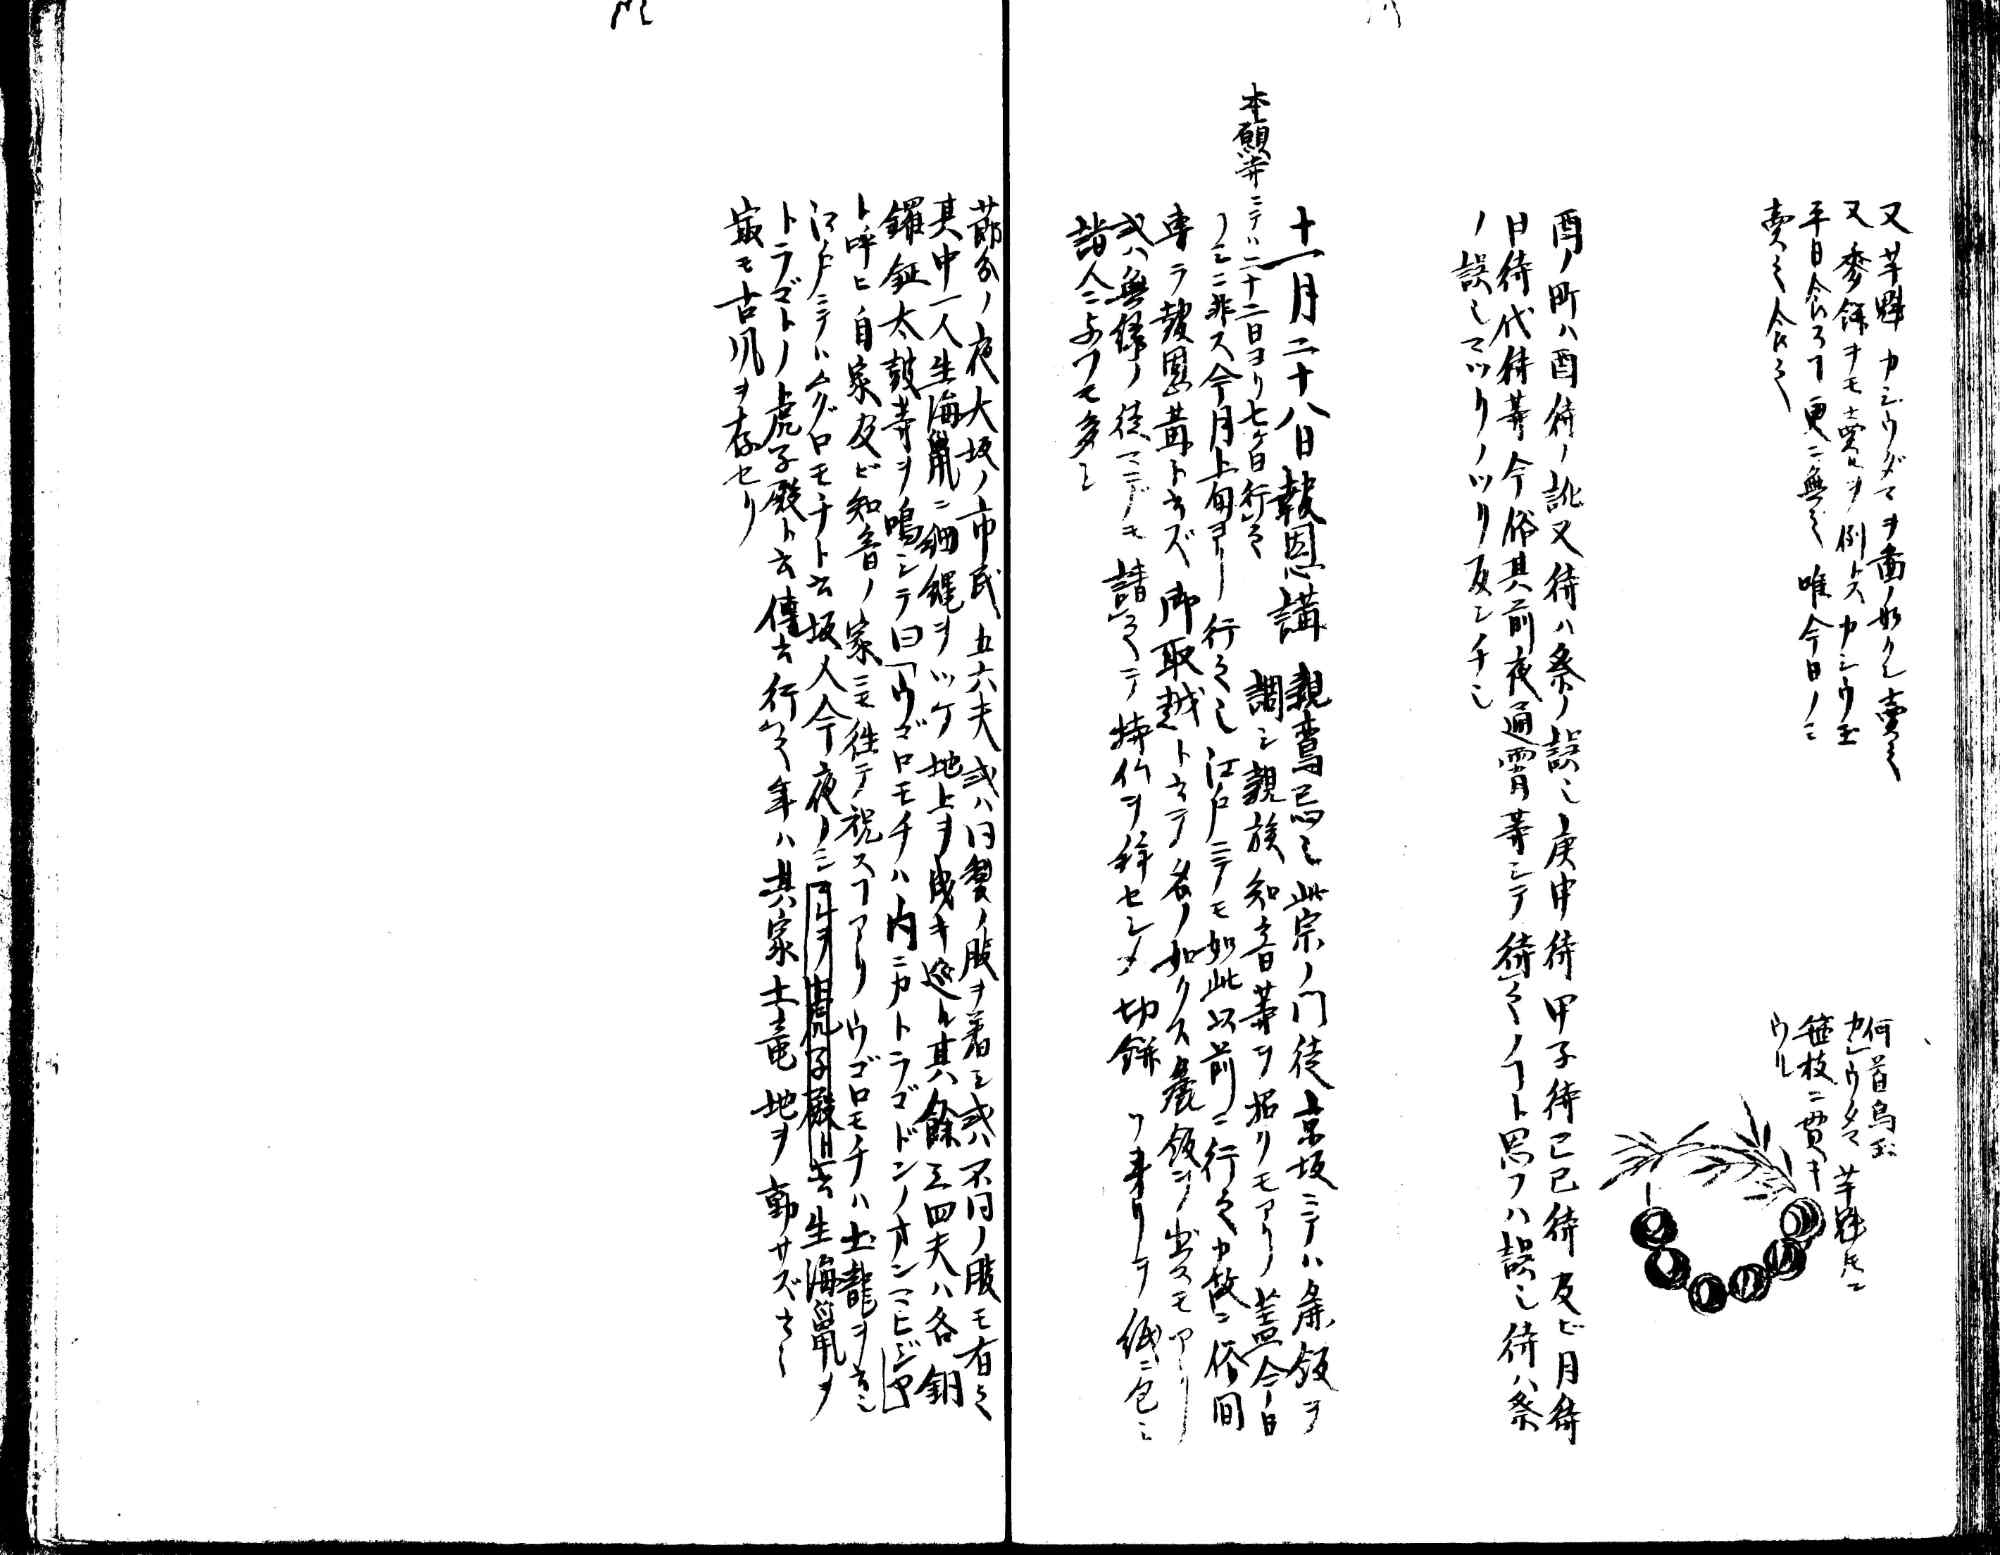 又芋魁カシウダマヲ図ノ如クシ売之
又黍餅ヲモ売ルヲ例トス カシウ玉
平日食フコ更ニ無之 唯今日ノミ
売之食之
何首烏玉
カシウ玉 芋魁トモニ
笹枝ニ貫キ
ウル
酉ノ町ハ酉待ノ訛又待ハ祭ノ誤也 庚申待甲子待己巳待及ビ月待
日待代待等今俗其前夜通宵等シテ待之ノコト思フハ誤也 待ハ祭
ノ誤也 マツリノツリ反シチ也
十一月二十八日報恩講 親鸞忌也 此宗ノ門徒京坂ニテハ斎飯ヲ
本願寺ニテハ二十二日ヨリ七ケ日行之
調シ親族知音等ヲ招クモアリ 蓋今日
ノミニ非ス今月上旬ヨリ行之也 江戸ニテモ如此以前ニ行之カ故ニ俗間
専ラ報恩講ト云ズ御取越ト云テ名ノ如クス 斎飯ヲ出スモアリ
或ハ無縁ノ徒マデモ請之テ持仏ヲ拝セシメ切餅ヲ紙ニ包ミ
諸人ニ与フモ多シ
節分ノ夜大坂ノ市民五六夫或ハ同製ノ服ヲ着シ或ハ不同ノ服モ有之
其中一人生海鼠ニ細縄ヲツケ地上ヲ曳キ巡ル其餘三四夫ハ各銅
鑼鉦太鼓等ヲ鳴シテ曰「ウゴロモチハ内ニカトラゴドンノオンマヒジヤ」
ト呼ビ自家及ビ知音ノ家ニモ往テ祝スコアリ ウゴロモチハ土龍ヲ云也
江戸ニテハムグロモチト云 坂人今夜ノミ生海鼠ヲ
トラゴトノ虎子殿ト云 伝云行之年ハ其家土竜地ヲ動サズト云
最モ古風ヲ存セリ